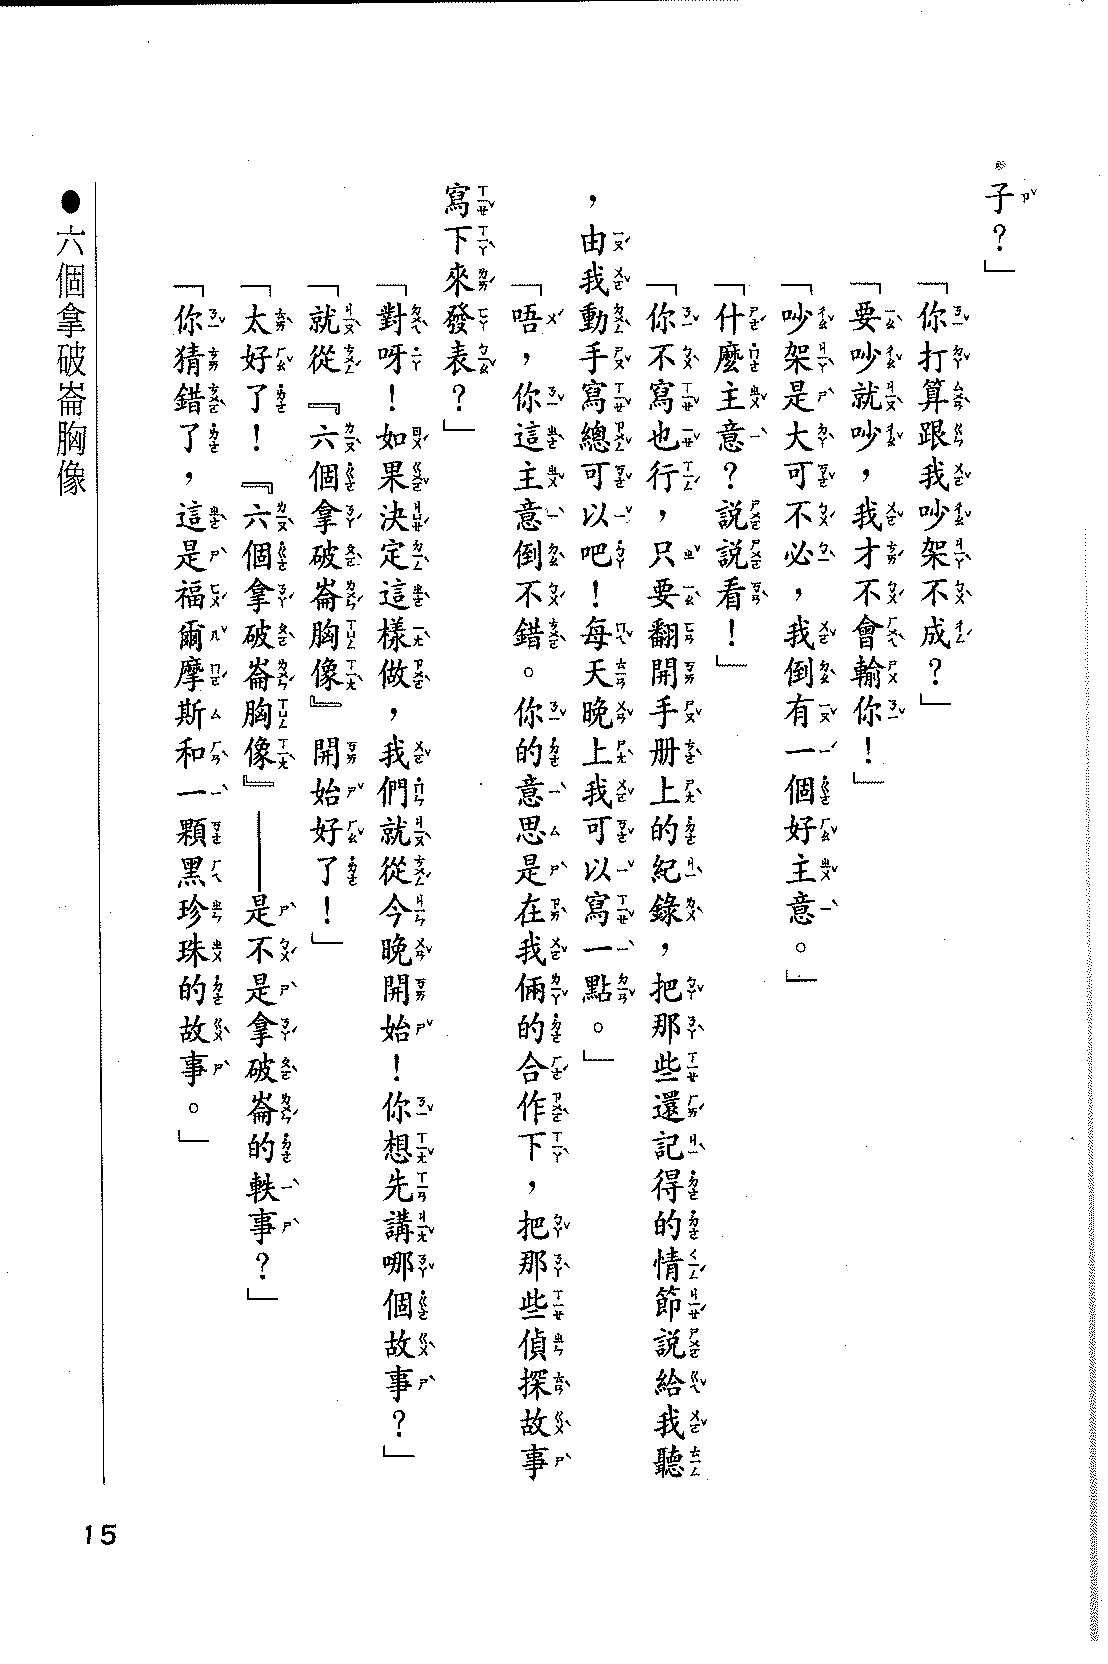 子？」
「你打算跟我吵架不成？」
「要吵就吵，我才不會輸你！」
「吵架是大可不必，我倒有一個好主意。」
「什麼主意？說說看！」
「你不寫也行，只要翻開手册上的紀錄，把那些還記得的情節說給我聽
，由我動手寫總可以吧！每天晚上我可以寫一點。」
「唔，你這主意倒不錯。你的意思是在我倆的合作下，把那些偵探故事
寫下來發表？」
「對呀！如果決定這樣做，我們就從今晚開始！你想先講哪個故事？」
「就從『六個拿破崙胸像』開始好了！」
「太好了！『六個拿破崙胸像』——是不是拿破崙的軼事？」
「你猜錯了，這是福爾摩斯和一顆黑珍珠的故事。」
●六個拿破崙胸像
15